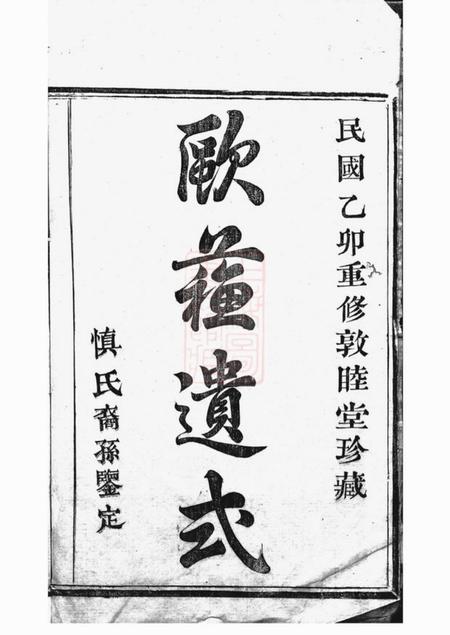 民國乙卯重修敦睦堂珍藏
歐蘓遺式
慎氏裔孫鑒定